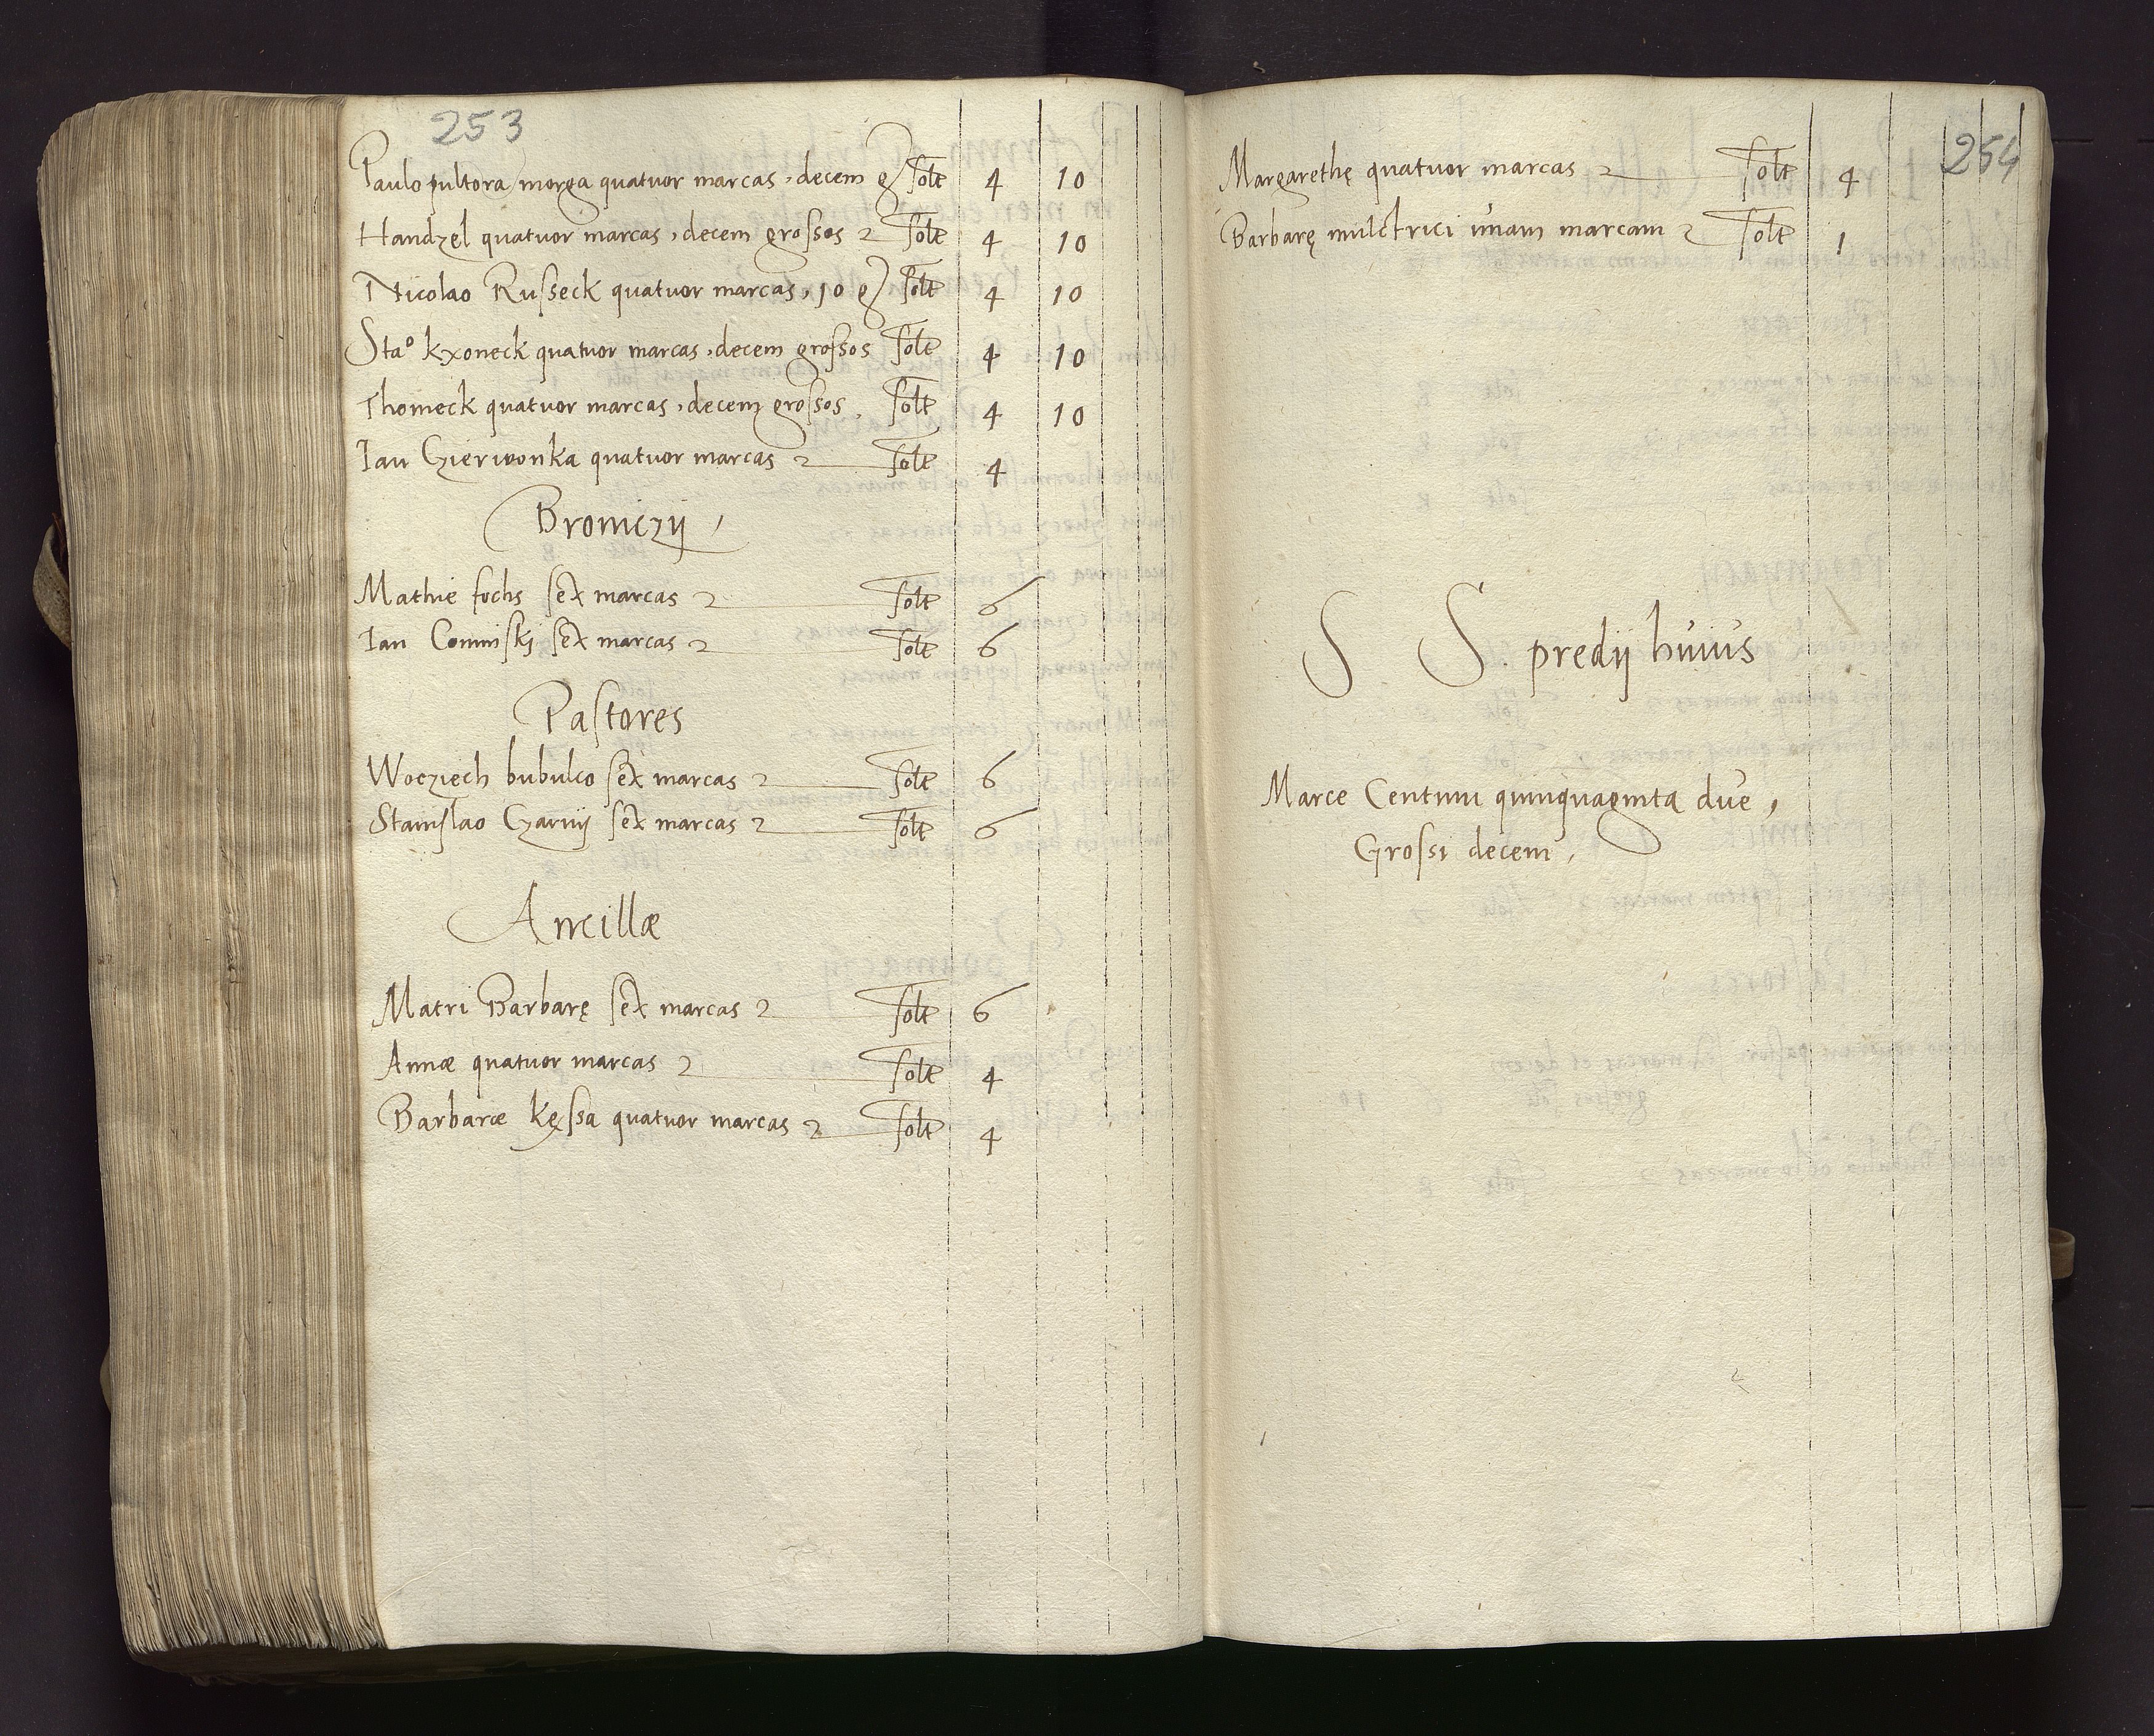 253
Paulo pultora morga quatuor marcas, decem g solt 4 10
Handzel quatuor marcas, decem grossos solt 4 10
Nicolao Russeck quatuor marcas, 10 g solt 4 10
Stao kxoneck quatuor marcas, decem grossos solt 4 10
Thomeck quatuor marcas, decem grossos, solt 4 10
Ian Czierwonka quatuor marcas solt 4
Broniczij
Mathie fochs sex marcas solt 6
Ian Comniski sex marcas solt 6
Pastores
Wocziech bubulco sex marcas solt 6
Stanislao Czarnij sex marcas solt 6
Ancillæ
Matri Barbarę sex marcas solt 6
Annæ quatuor marcas solt 4
Barbaræ kęssa quatuor marcas solt 4
254
Margarethę quatuor marcas solt 4
Barbarę mulctrici unam marcam solt 1
S S. predij huius
Marce Centum quinquaginta due,
Grossi decem,